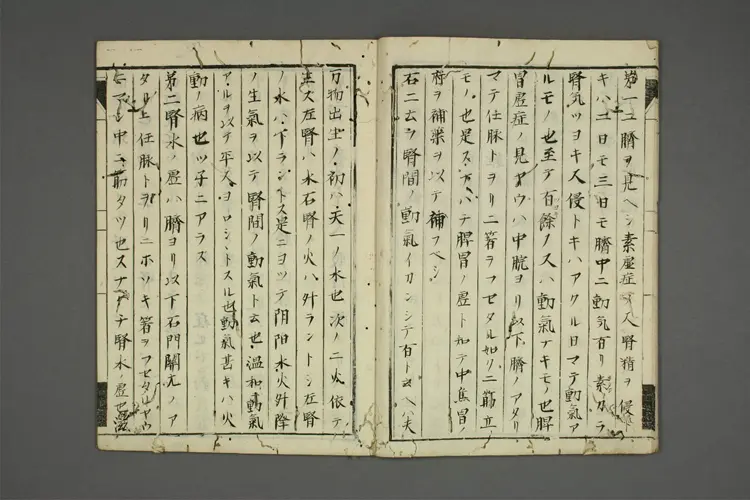 第一ニ臍ヲ見ヘシ素虚症ノ人腎精ヲ侵
キハ一日モ三日モ臍中ニ動気有リ素カラ
腎気ツヨキ人侵トキハアクル日マテ動氣ア
ルモノ也至テ百餘ノ人ハ動氣ナキモノ也脾
胃虚症ノ見ヤウハ中脘ヨリ以下臍ノアタリ
マテ任脉トヲリニ箸ヲフセタル如クニ筋立
モノ也是スナハチ脾胃ノ虚ト知テ中焦胃ノ
府ヲ補藥ヲ以テ補フヘシ
右ニ云フ腎間ノ動氣イカンシテ有ト云ヘハ夫
万物出生ノ初ハ天一ノ水也次ノ二火依テ
生ス左腎ハ水右腎ノ火ハ升ラントシ左腎
ノ水ハ下ラントス是ニヨツテ阴阳水火升降
ノ生氣ヲ以テ腎間ノ動氣ト云也温和動氣
アルヲ以テ平人ヨロシトスル也動氣甚キハ火
動ノ病也ツ子ニアラス
第二腎水ノ虚ハ臍ヨリ以下石門關元ノア
タリ上任脉トヲリニホソキ箸ヲフセタルヤウ
中ニ筋タツ也スナハチ腎水ノ虚也